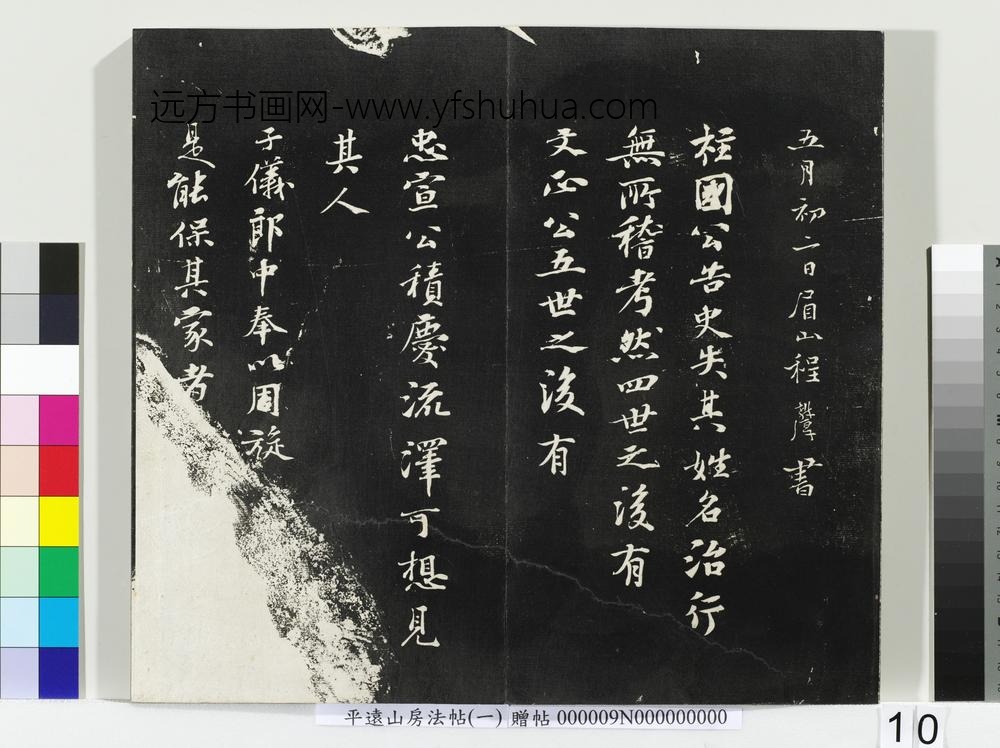 五月初二日眉山程 書
柱國公告史失其姓名治行
無所稽考然四世之後有
文正公五世之後有
忠宣公積慶流澤可想見
其人
子儀郎中奉以周旋
是能保其家者
远方书画网-www.yfshuhua.com
平遠山房法帖(一) 贈帖 000009N000000000
10